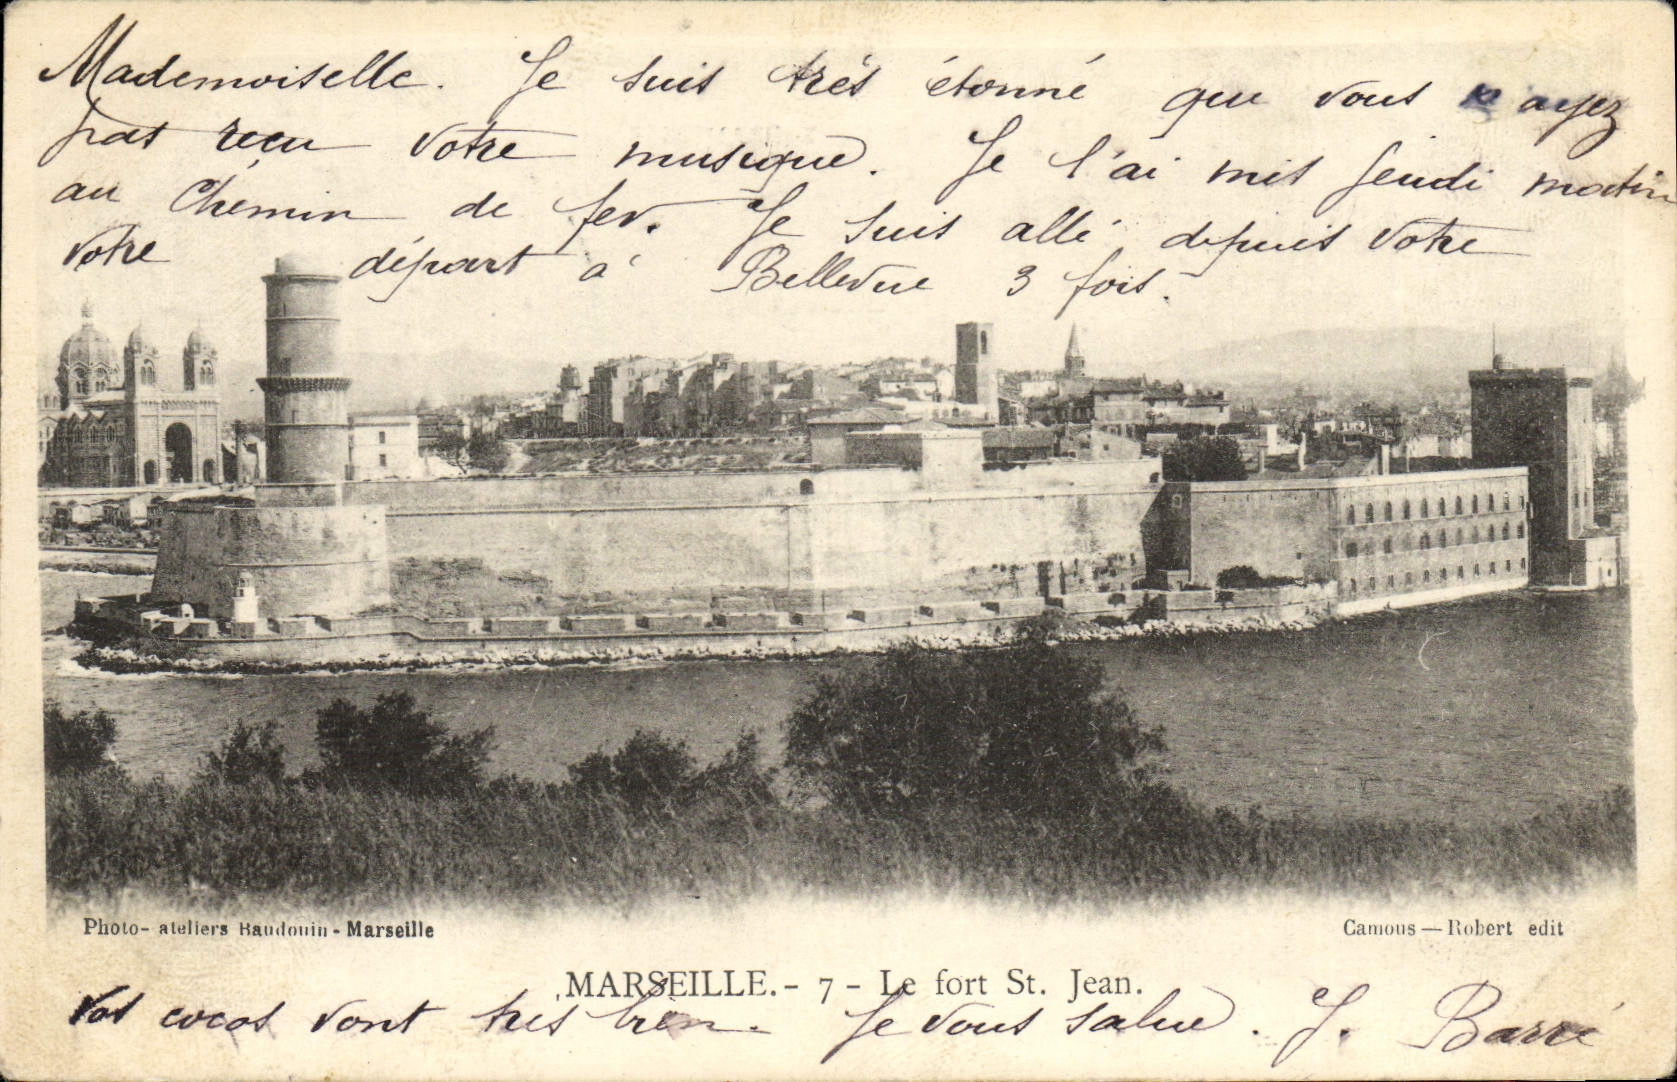 Mademoiselle. Je suis très étonné que vous n'ayez
pas reçu votre musique. Je l'ai mis Jeudi matin
au Chemin de fer. Je suis allé depuis votre
votre départ à Bellevue 3 fois.
Photo-ateliers Baudouin - Marseille
Camous — Robert edit
MARSEILLE. - 7 - Le fort St. Jean.
Vos cocos vont très bien. Je vous salue. J. Barré